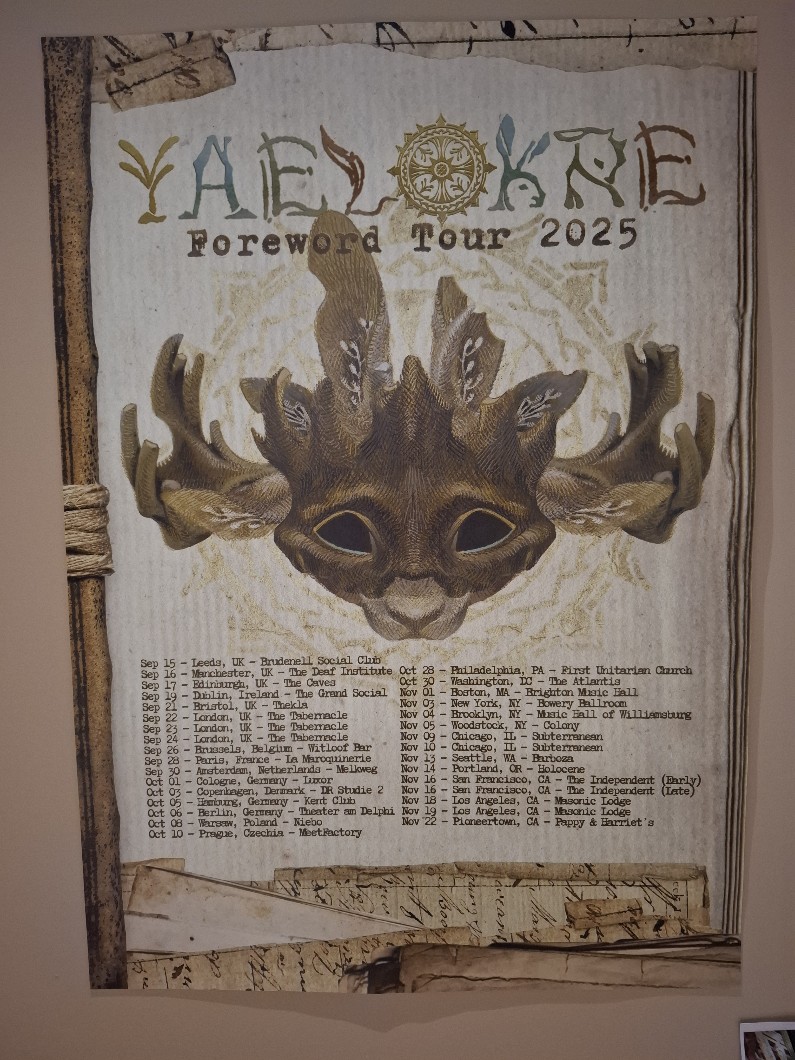 YAELOKRE
Foreword Tour 2025
Sep 15 - Leeds, UK - Brudenell Social Club
Sep 16 - Manchester, UK - The Deaf Institute
Sep 17 - Edinburgh, UK - The Caves
Sep 19 - Dublin, Ireland - The Grand Social
Sep 21 - Bristol, UK - Thekla
Sep 22 - London, UK - The Tabernacle
Sep 23 - London, UK - The Tabernacle
Sep 24 - London, UK - The Tabernacle
Sep 26 - Brussels, Belgium - Witloof Bar
Sep 28 - Paris, France - La Maroquinerie
Sep 30 - Amsterdam, Netherlands - Melkweg
Oct 01 - Cologne, Germany - Luxor
Oct 03 - Copenhagen, Denmark - DR Studie 2
Oct 05 - Hamburg, Germany - Kent Club
Oct 06 - Berlin, Germany - Theater am Delphi
Oct 08 - Warsaw, Poland - Niebo
Oct 10 - Prague, Czechia - MeetFactory
Oct 28 - Philadelphia, PA - First Unitarian Church
Oct 30 - Washington, DC - The Atlantis
Nov 01 - Boston, MA - Brighton Music Hall
Nov 03 - New York, NY - Bowery Ballroom
Nov 04 - Brooklyn, NY - Music Hall of Williamsburg
Nov 05 - Woodstock, NY - Colony
Nov 09 - Chicago, IL - Subterranean
Nov 10 - Chicago, IL - Subterranean
Nov 13 - Seattle, WA - Barboza
Nov 14 - Portland, OR - Holocene
Nov 16 - San Francisco, CA - The Independent (Early)
Nov 16 - San Francisco, CA - The Independent (Late)
Nov 18 - Los Angeles, CA - Masonic Lodge
Nov 19 - Los Angeles, CA - Masonic Lodge
Nov 22 - Pioneertown, CA - Pappy & Harriet's